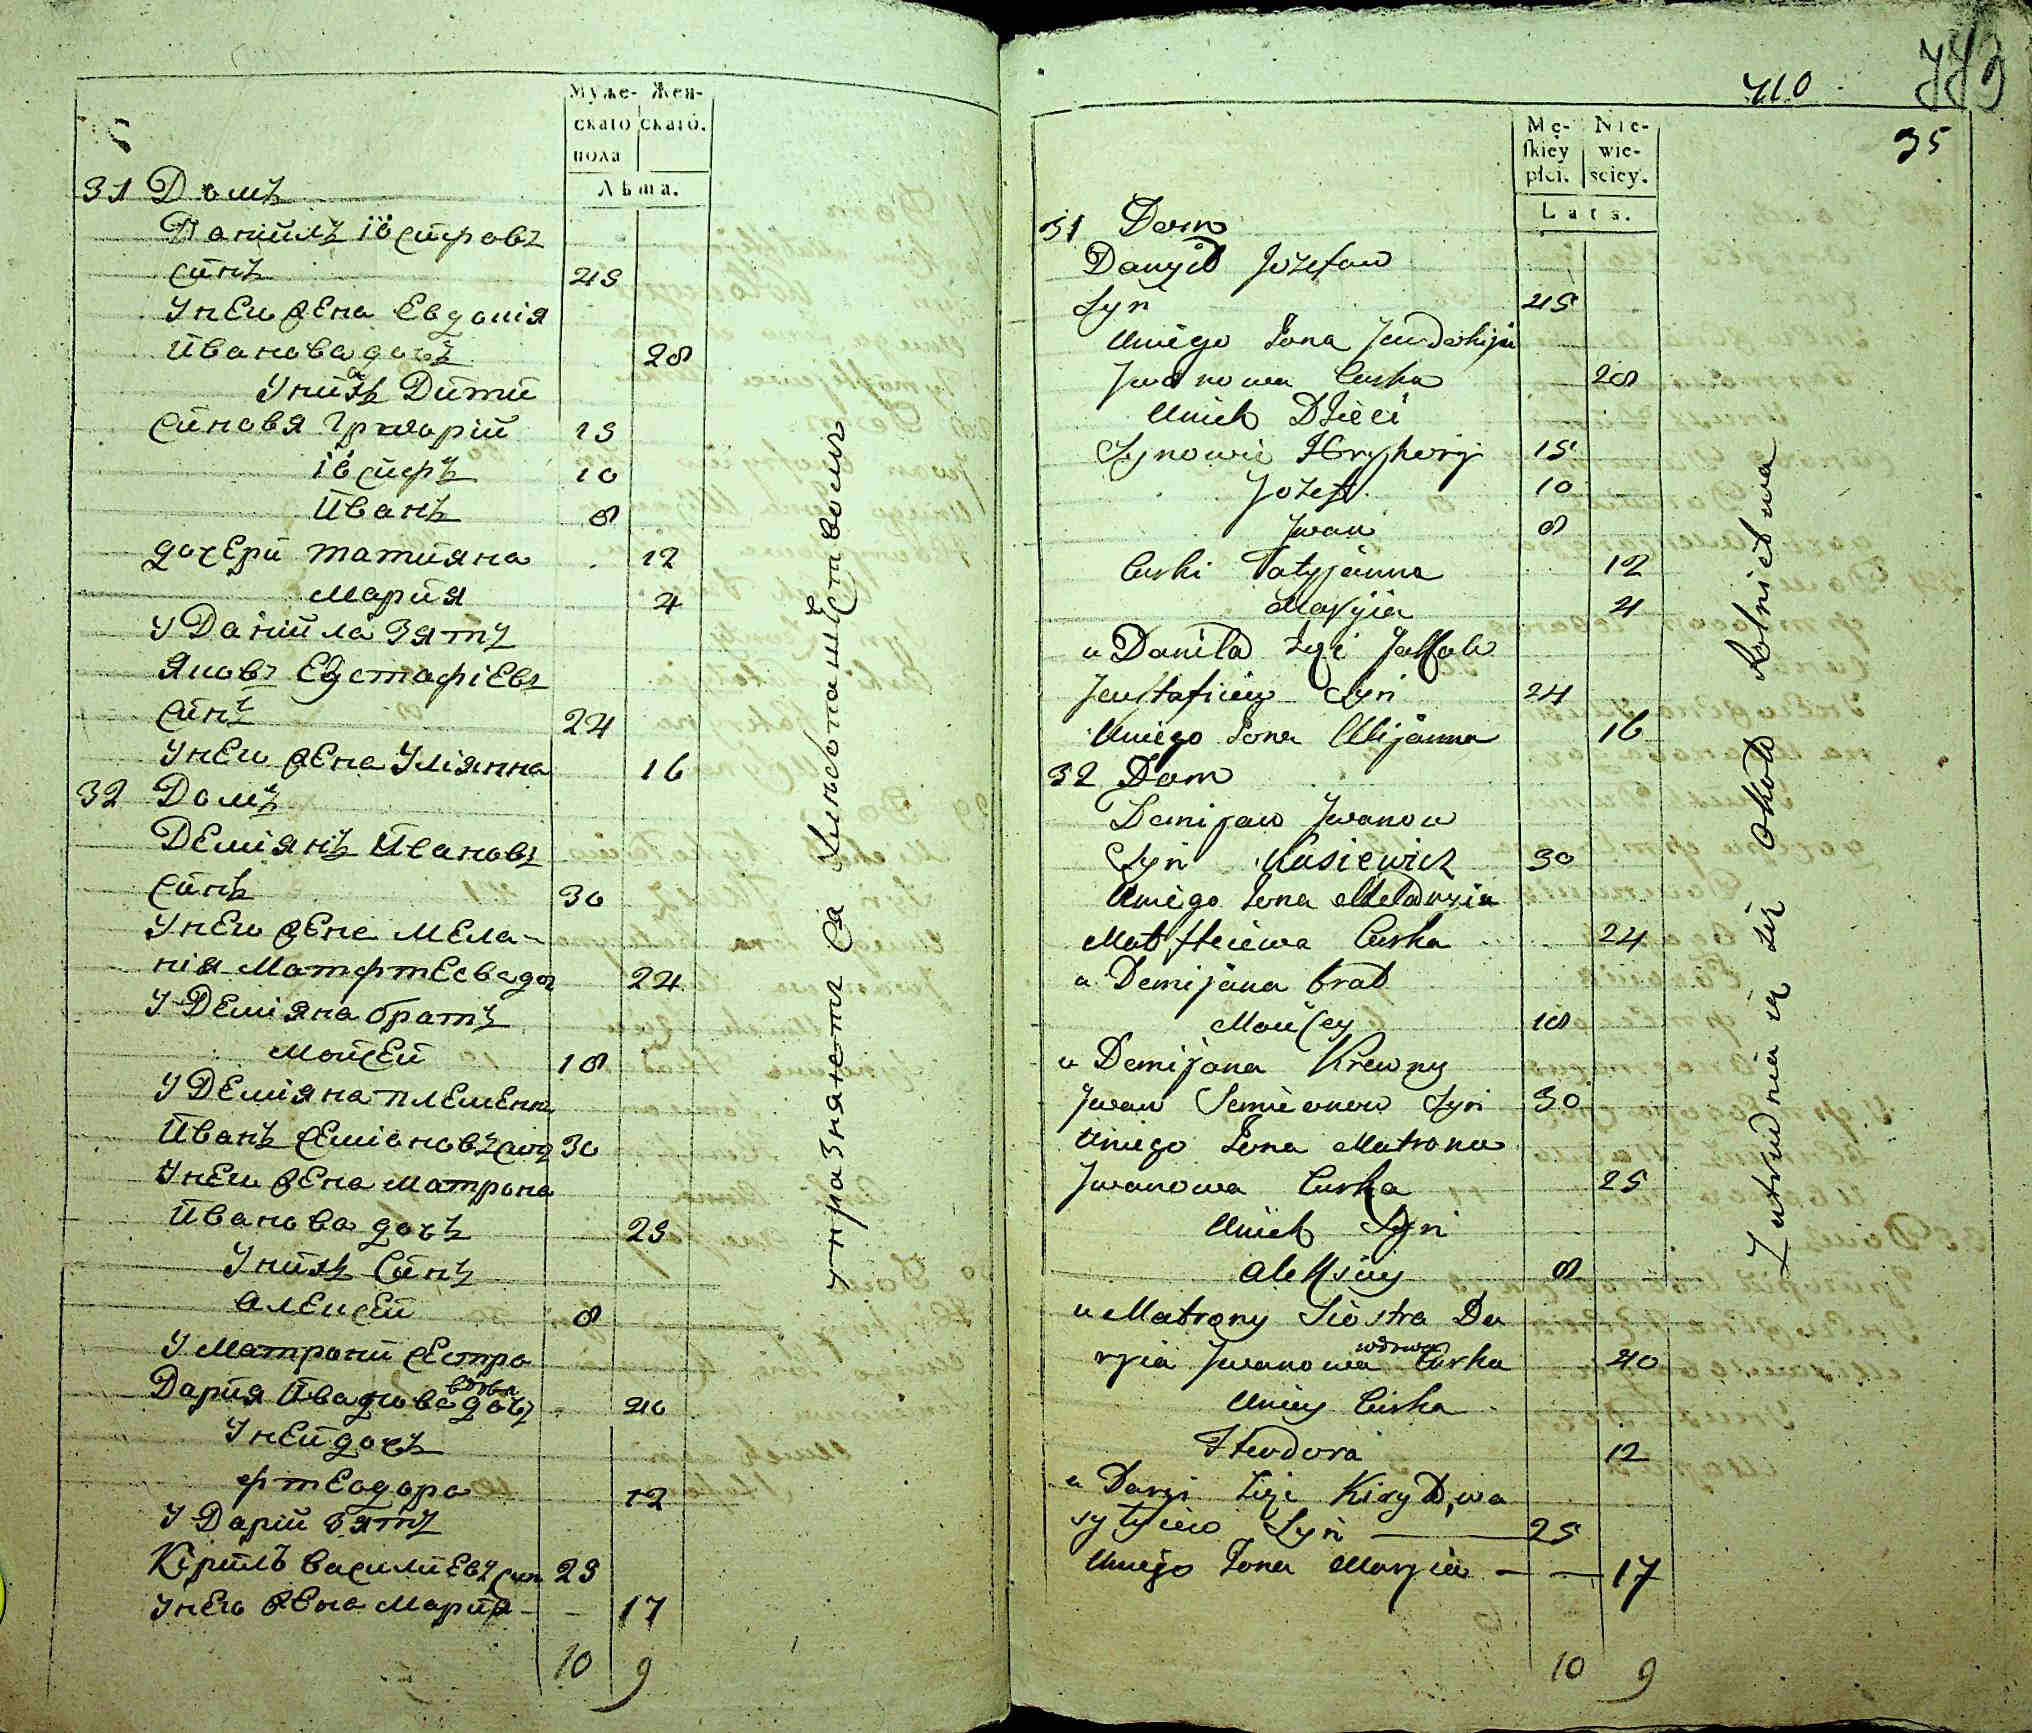 Муже- Жен-
скаго скаго.
пола
Лѣта.
31 Домъ
Данiилъ Iосифовъ
синъ 45
У него жена Евдокiя
Иванова дочъ 28
У нихъ Дити
Синовя Григорiй 15
Iосифъ 10
Иванъ 8
дочери Татияна 12
Мария 4
У Данiила Зять
Яковъ Евстафiевъ
синъ 24
У него жена Улiянна 16
32 Домъ
Демiянъ Ивановъ
синъ 30
У него жена Мела-
нiя Матфтеева доч 24
У Демiяна братъ
Мойсей 18
У Демiяна племенн
Иванъ Семiоновъ син 30
У него жена Матрона
Иванова дочъ 25
У нихъ Синъ
Алексей 8
У Матрони сестра
вдова
Дария Иванова дочъ 40
У ней дочъ
Фтеодора 12
У Дарiи Зять
Кирилъ Василиевъ син 25
У него жена Мария 17
10 9
упражняются въ хлебопашествомъ
710
773
35
Mę- Nie-
skiey wie-
płci. sciey.
Lata.
31 Dom
Danyił Jozefow
Syn 45
U niego Żona Jewdokija
Jwanowa Curka 28
U nich Dzieci
Synowie Hryhory 15
Jozef 10
Jwan 8
Curki Tatyjanna 12
Maryia 4
u Daniła Zięć Jakob
Jewstafiiew Syn 24
U niego Żona Ulijanna 16
32 Dom
Demijan Jwanow
Syn Kusiewicz 30
U niego Żona Mełanyia
Matfteiewa Curka 24
u Demijana brat
Mouysey 18
u Demijana Krewny
Jwan Semionow Syn 30
U niego Żona Matrona
Jwanowa Curka 25
U nich Syn
Aleksiey 8
u Matrony Siostra Da
wdowa
ryia Jwanowa Curka 40
U niey Curka
Fteodora 12
u Daryi Zięć Kirył, wa
syłyiew Syn 25
U niego Żona Maryia 17
10 9
Zatrudniaią się około Rolnictwa